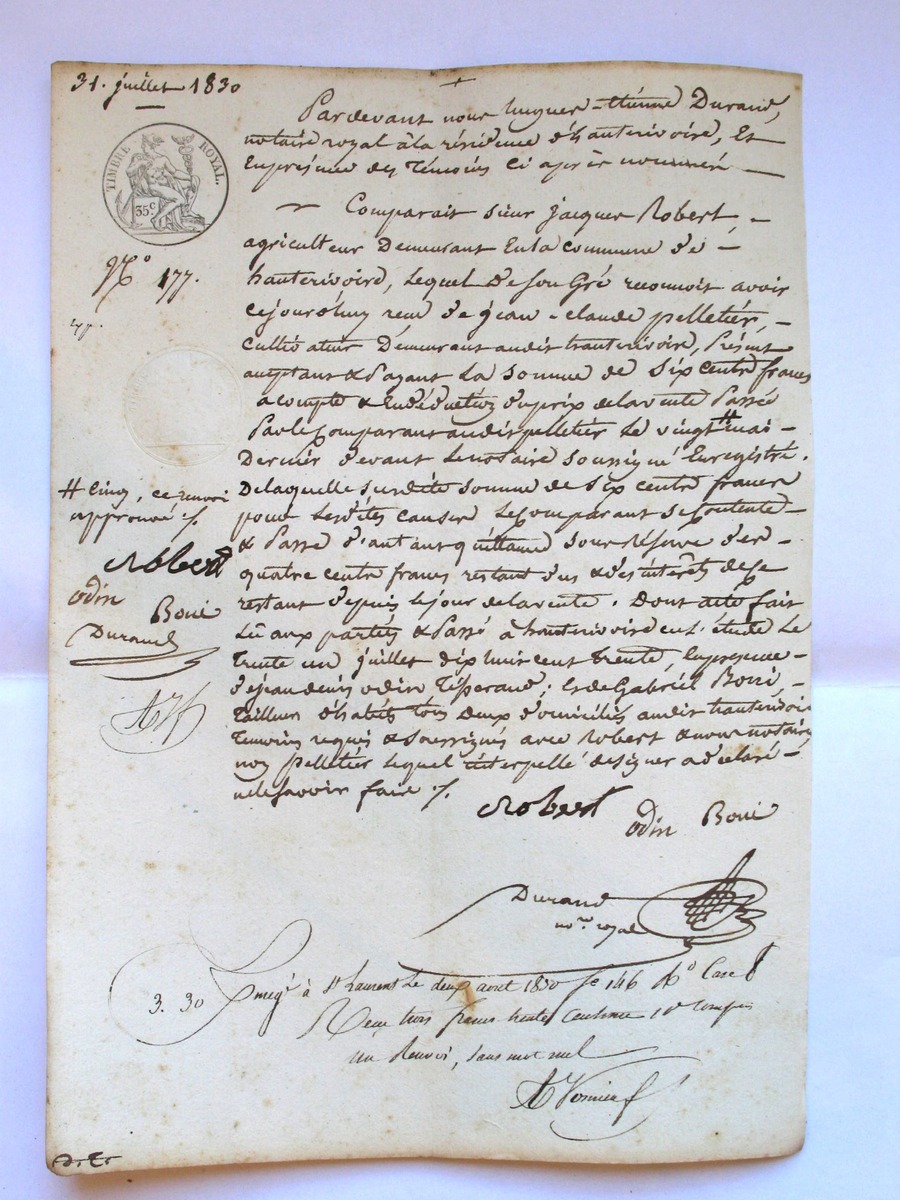 31. juillet 1830
TIMBRE ROYAL.
35c
No 177.
Pardevant nous hugues-étienne Durand,
notaire royal à la résidence d'hauterivoire, Et
Enpresence des Témoins ci après nommés
Comparait sieur jacques Robert,
agriculteur Demeurant Enla commune d'
hauterivoire, Lequel de son Gré reconnoit avoir
cejourd'huy reçu de jean-claude pelletier,
cultivateur Demeurant audit hauterivoire, Présent
acceptant & Payant La somme de Six cents francs
acompte & Endéduction duprix delavente Passée
Parle Comparant audit pelletier Le vingt # mai
Dernier devant Lenotaire soussigné Enregistré.
Delaquelle susdite somme de six cents francs
pour lesdites causes Lecomparant se Contente
& Passe d'autant quittance sous Réserve des
quatre cents francs restant dus & des intérêts de ce
restant depuis lejour delavente. Dont acte fait
Lû aux parties & Passé à hauterivoire en l'étude Le
Trente un juillet dix huit cent trente, Enpresence
de jean denis odin Tisserand, Et de Gabriel Boni,
Tailleur d'habits tous deux domiciliés audit hauterivoire
Temoins requis & soussignés avec Robert & nous notaire
non pelletier Lequel interpellé designer a déclaré
nelesavoir faire ./.
# cinq, ce renvoi
approuvé ./.
Robert
odin Boni
Durand
Robert odin Boni
Durand
nore royal
3. 30 Enregé à St Laurent Le deux août 1830 fo 146 Ro Case 8
Reçu trois francs trente Centimes 10e compris
un Renvoi, sans mot nul